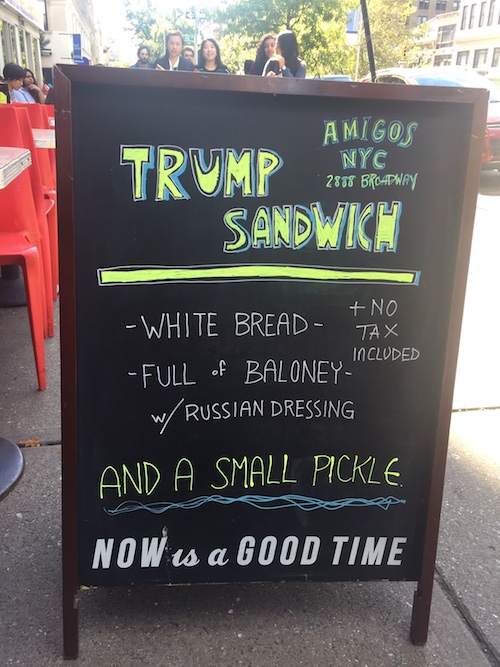 AMIGOS
NYC
2888 BROADWAY
TRUMP
SANDWICH
-WHITE BREAD-
+ NO
TAX
INCLUDED
-FULL of BALONEY-
w/ RUSSIAN DRESSING
AND A SMALL PICKLE.
NOW is a GOOD TIME